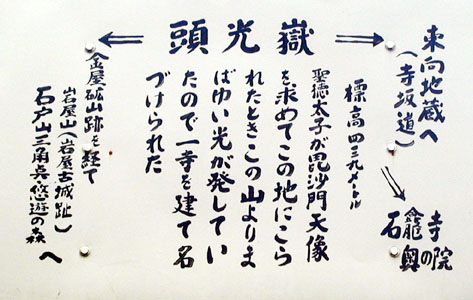 東向地蔵へ
(寺坂道)
石龕寺
奥の院
嶽光頭
標高四三九メートル
聖徳太子が毘沙門天像
を求めてこの地にこら
れたときこの山よりま
ばゆい光が発してい
たので一寺を建て名
づけられた
金屋鉱山跡を経て
岩屋山(岩屋古城趾)
石戸山三角点悠遊の森へ